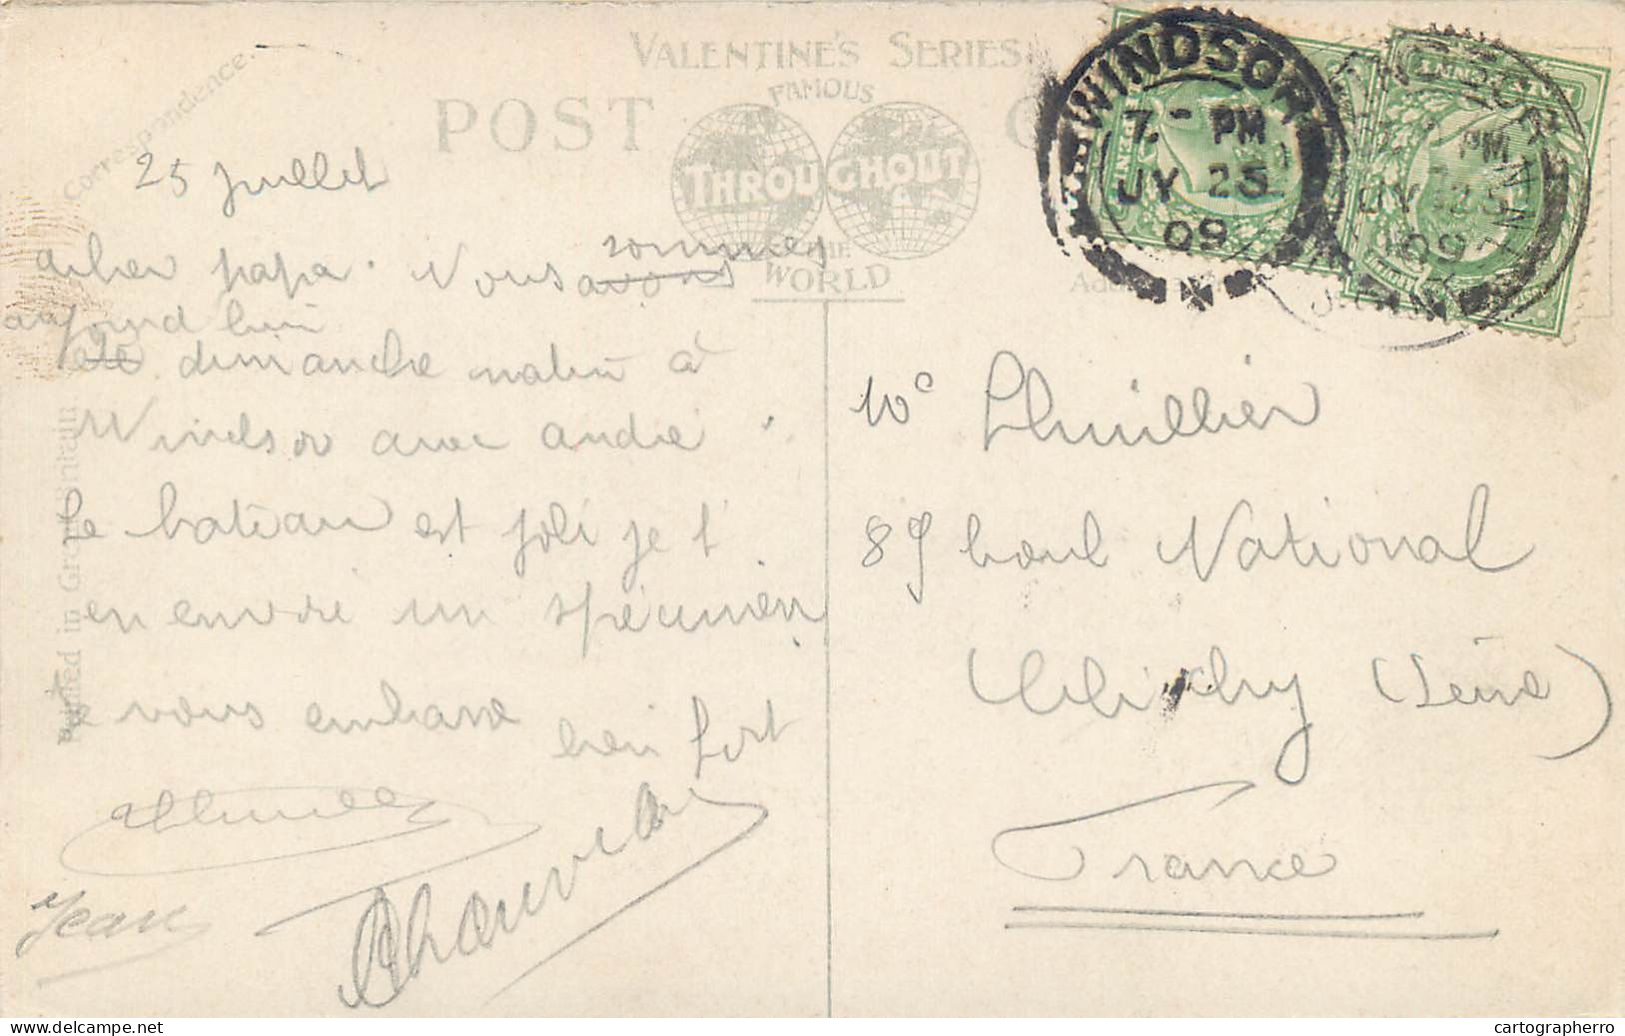 VALENTINE'S SERIES
FAMOUS
POST C
THROUGHOUT
THE
WORLD
Correspondence.
Printed in Great Britain
WINDSOR
7 - PM
JY 25
09
WINDSOR
PM
JY 25
09
25 juillet
cher papa. Nous avons sommes
aujourd'hui
été dimanche matin à
Windsor avec andré.
Le bateau est joli je t'
en envoie un spécimen
Je vous embrasse bien fort
Lhuillier
Jean
Chauveau
Mr Lhuillier
89 boul National
Clichy (Seine)
France
cartographerro